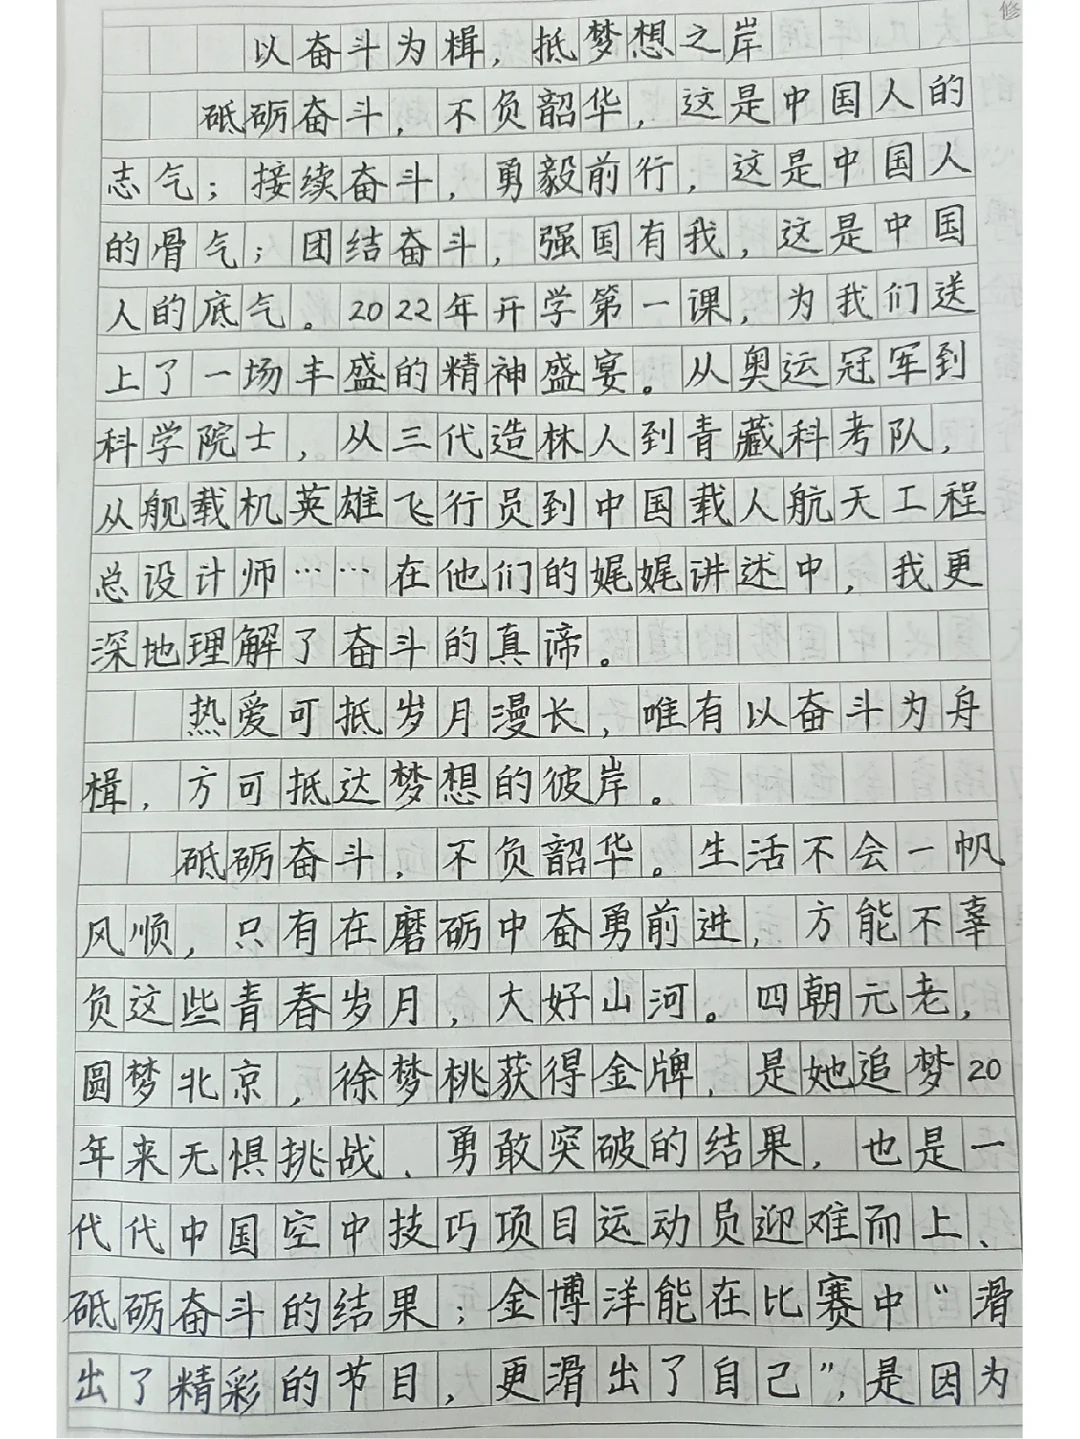 修
以奋斗为楫，抵梦想之岸
砥砺奋斗，不负韶华，这是中国人的
志气；接续奋斗，勇毅前行，这是中国人
的骨气；团结奋斗，强国有我，这是中国
人的底气。2022年开学第一课，为我们送
上了一场丰盛的精神盛宴。从奥运冠军到
科学院士，从三代造林人到青藏科考队，
从舰载机英雄飞行员到中国载人航天工程
总设计师……在他们的娓娓讲述中，我更
深地理解了奋斗的真谛。
热爱可抵岁月漫长，唯有以奋斗为舟
楫，方可抵达梦想的彼岸。
砥砺奋斗，不负韶华。生活不会一帆
风顺，只有在磨砺中奋勇前进，方能不辜
负这些青春岁月，大好山河。四朝元老，
圆梦北京，徐梦桃获得金牌，是她追梦20
年来无惧挑战、勇敢突破的结果，也是一
代代中国空中技巧项目运动员迎难而上、
砥砺奋斗的结果；金博洋能在比赛中“滑
出了精彩的节目，更滑出了自己”，是因为